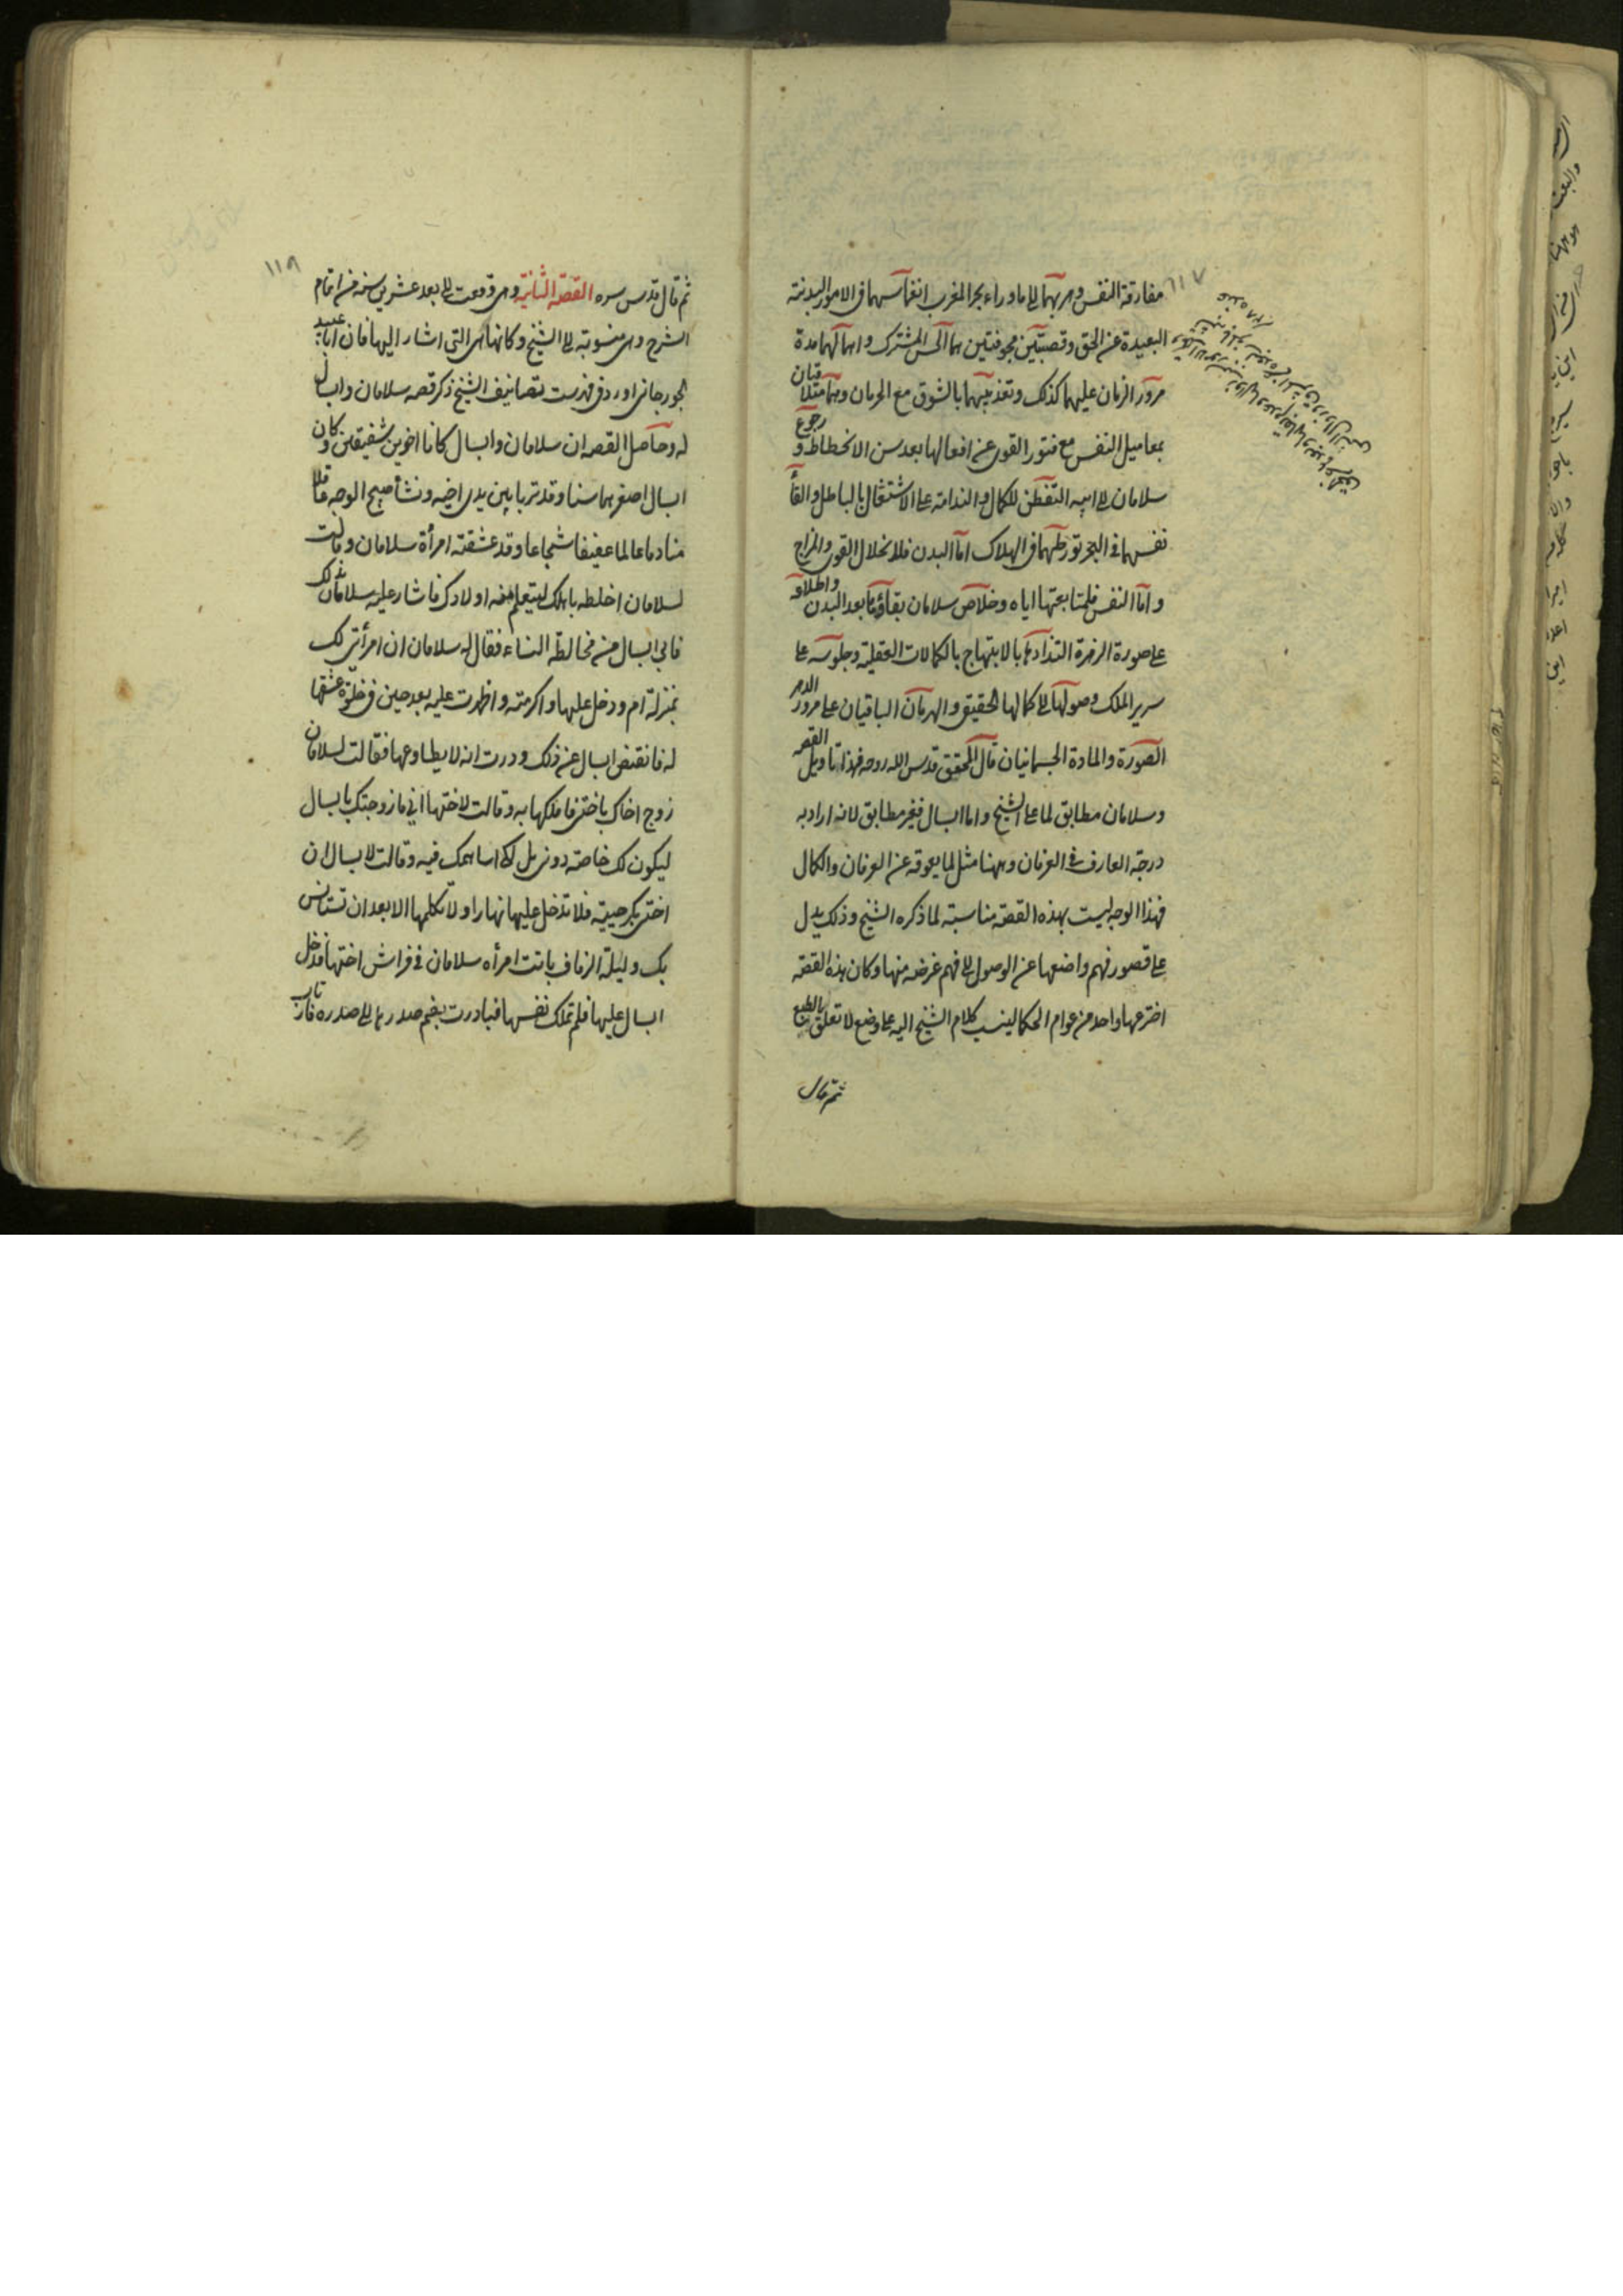 ١١٧
مفارقة النفس وهربهما الى ماوراء بحر المغرب انغماسهما فى الامور البدنية
البعيدة عن الحق وقصبتين مجوفتين هما الحس المشترك واهمالهما مدة
مرور الزمان عليهما كذلك وتعذيبهما بالشوق مع الحرمان وهما متلاقيان
بما ميل النفس مع فتور القوى عن افعالها بعد سن الانحطاط ورجوع
سلامان الى ابيه التفطن للكمال والندامة على الاشتغال بالباطل والقاء
نفسهما فى البحر تورطهما فى الهلاك اما البدن فلانحلال القوى والمزاج
واما النفس فلمتابعتها اياه وخلاص سلامان بقاؤها بعد البدن واطلاعه
على صورة الزهرة التذاذها بالابتهاج بالكمالات العقلية وجلوسه على
سرير الملك وصولها الى كمالها الحقيقى والهرمان الباقيان على مرور الدهر
الصورة والمادة الجسمانيان قال المحقق قدس الله روحه فهذا تاويل القصة
وسلامان مطابق لما على الشيخ واما ابسال فغير مطابق لانه اراد به
درجة العارف فى العرفان وههنا مثل لما يعوقه عن العرفان والكمال
فهذا الوجه ليست بهذه القصة مناسبة لما ذكره الشيخ وذلك يدل
على قصور فهم واضعها عن الوصول الى فهم غرضه منها وكان هذه القصة
اخترعها واحد من عوام الحكما لينسب كلام الشيخ اليه على وضع لا تعلق بالطبع
ثم قال
١١٨
ثم قال قدس سره القصة الثانية وهى وقعت الى بعد عشرين سنة من اتمام
الشرح وهى منسوبة الى الشيخ وكانها هى التى اشار اليها فان ابا عبيد
الجورجانى اورد فى فهرست تصانيف الشيخ ذكر قصه سلامان وابسال
له وحاصل القصه ان سلامان وابسال كانا اخوين شفيقين وكان
ابسال اصغرهما سنا وقد تربا بين يدى اخيه ونشأ صبيح الوجه عاقلا
متادبا عالما عفيفا شجاعا وقد عشقته امرأة سلامان وقالت
لسلامان اخلطه باهلك ليتعلم منه اولادك فاشار عليه سلامان بذلك
فابى ابسال من مخالطة النساء فقال له سلامان ان امرأتى لك
بمنزلة ام ودخل عليها واكرمته واظهرت عليه بعد حين فى خلوة عشقها
له فانقبض ابسال عن ذلك ودرت انه لا يطاوعها فقالت لسلامان
زوج اخاك باختى فاملكها به وقالت لاختها انى ما زوجتك بابسال
ليكون لك خاصة دونى بل لكى اساهمك فيه وقالت لابسال ان
اختى بكر حيية فلا تدخل عليها نهارا ولا تكلمها الا بعد ان تستانس
بك وليلة الزفاف باتت امرأه سلامان فى فراش اختها فدخل
ابسال عليها فلم تملك نفسها فبادرت بضم صدرها الى صدره فارتاب